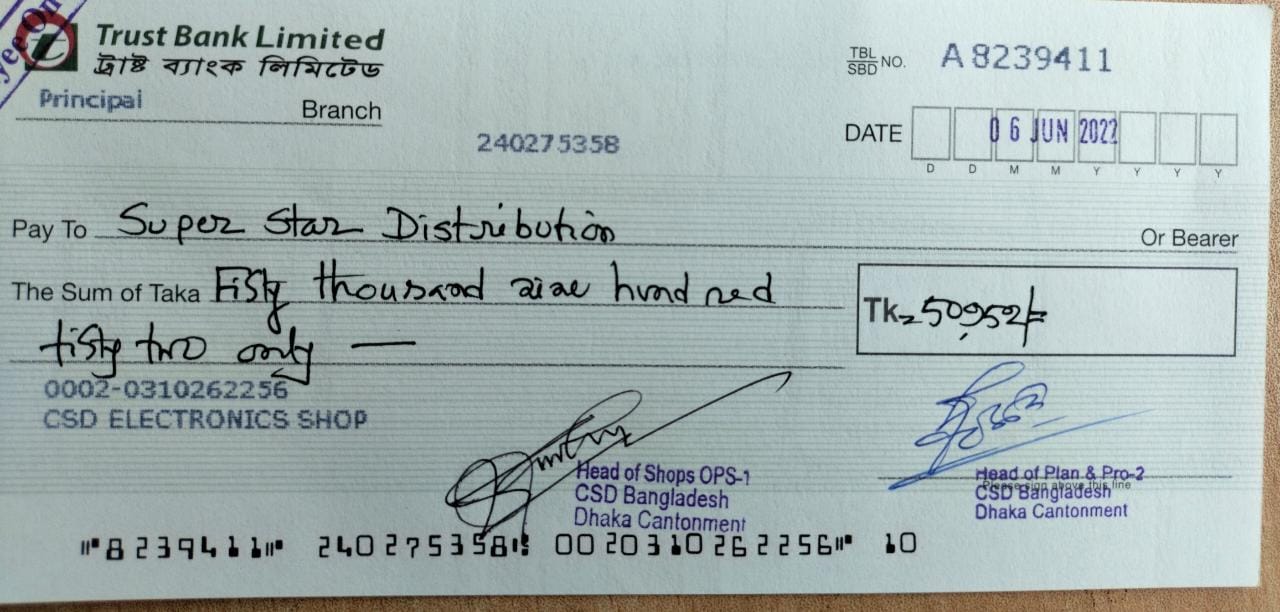 yee On
Trust Bank Limited
ট্রাস্ট ব্যাংক লিমিটেড
Principal Branch
TBL
SBD NO. A 8239411
240275358
DATE 06 JUN 2022
D D M M Y Y Y Y
Pay To Super Star Distribution Or Bearer
The Sum of Taka Fifty thousand nine hundred
fifty two only —
Tk=50,952/=
0002-0310262256
CSD ELECTRONICS SHOP
Head of Shops OPS-1
CSD Bangladesh
Dhaka Cantonment
Please sign above this line
Head of Plan & Pro-2
CSD Bangladesh
Dhaka Cantonment
⑈8239411⑈ 240275358⑆ 0020310262256⑈ 10